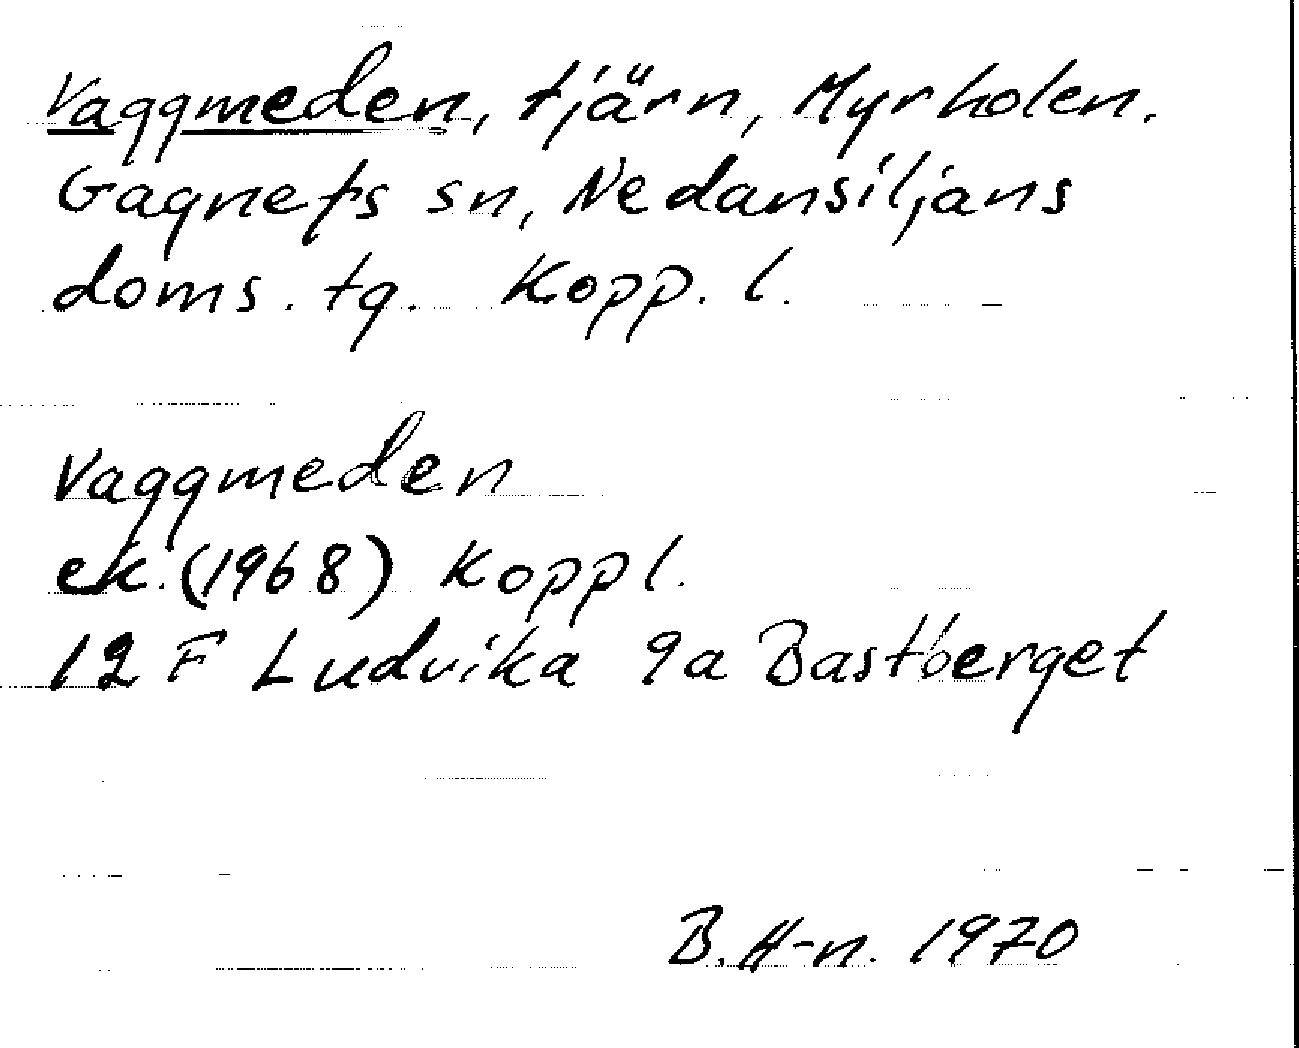 Vaggmeden, tjärn, Myrholen.
Gagnefs sn, Nedansiljans
doms. tg. Kopp. l.
Vaggmeden
ek. (1968) Koppl.
12 F Ludvika 9a Bastberget
B. H-n. 1970